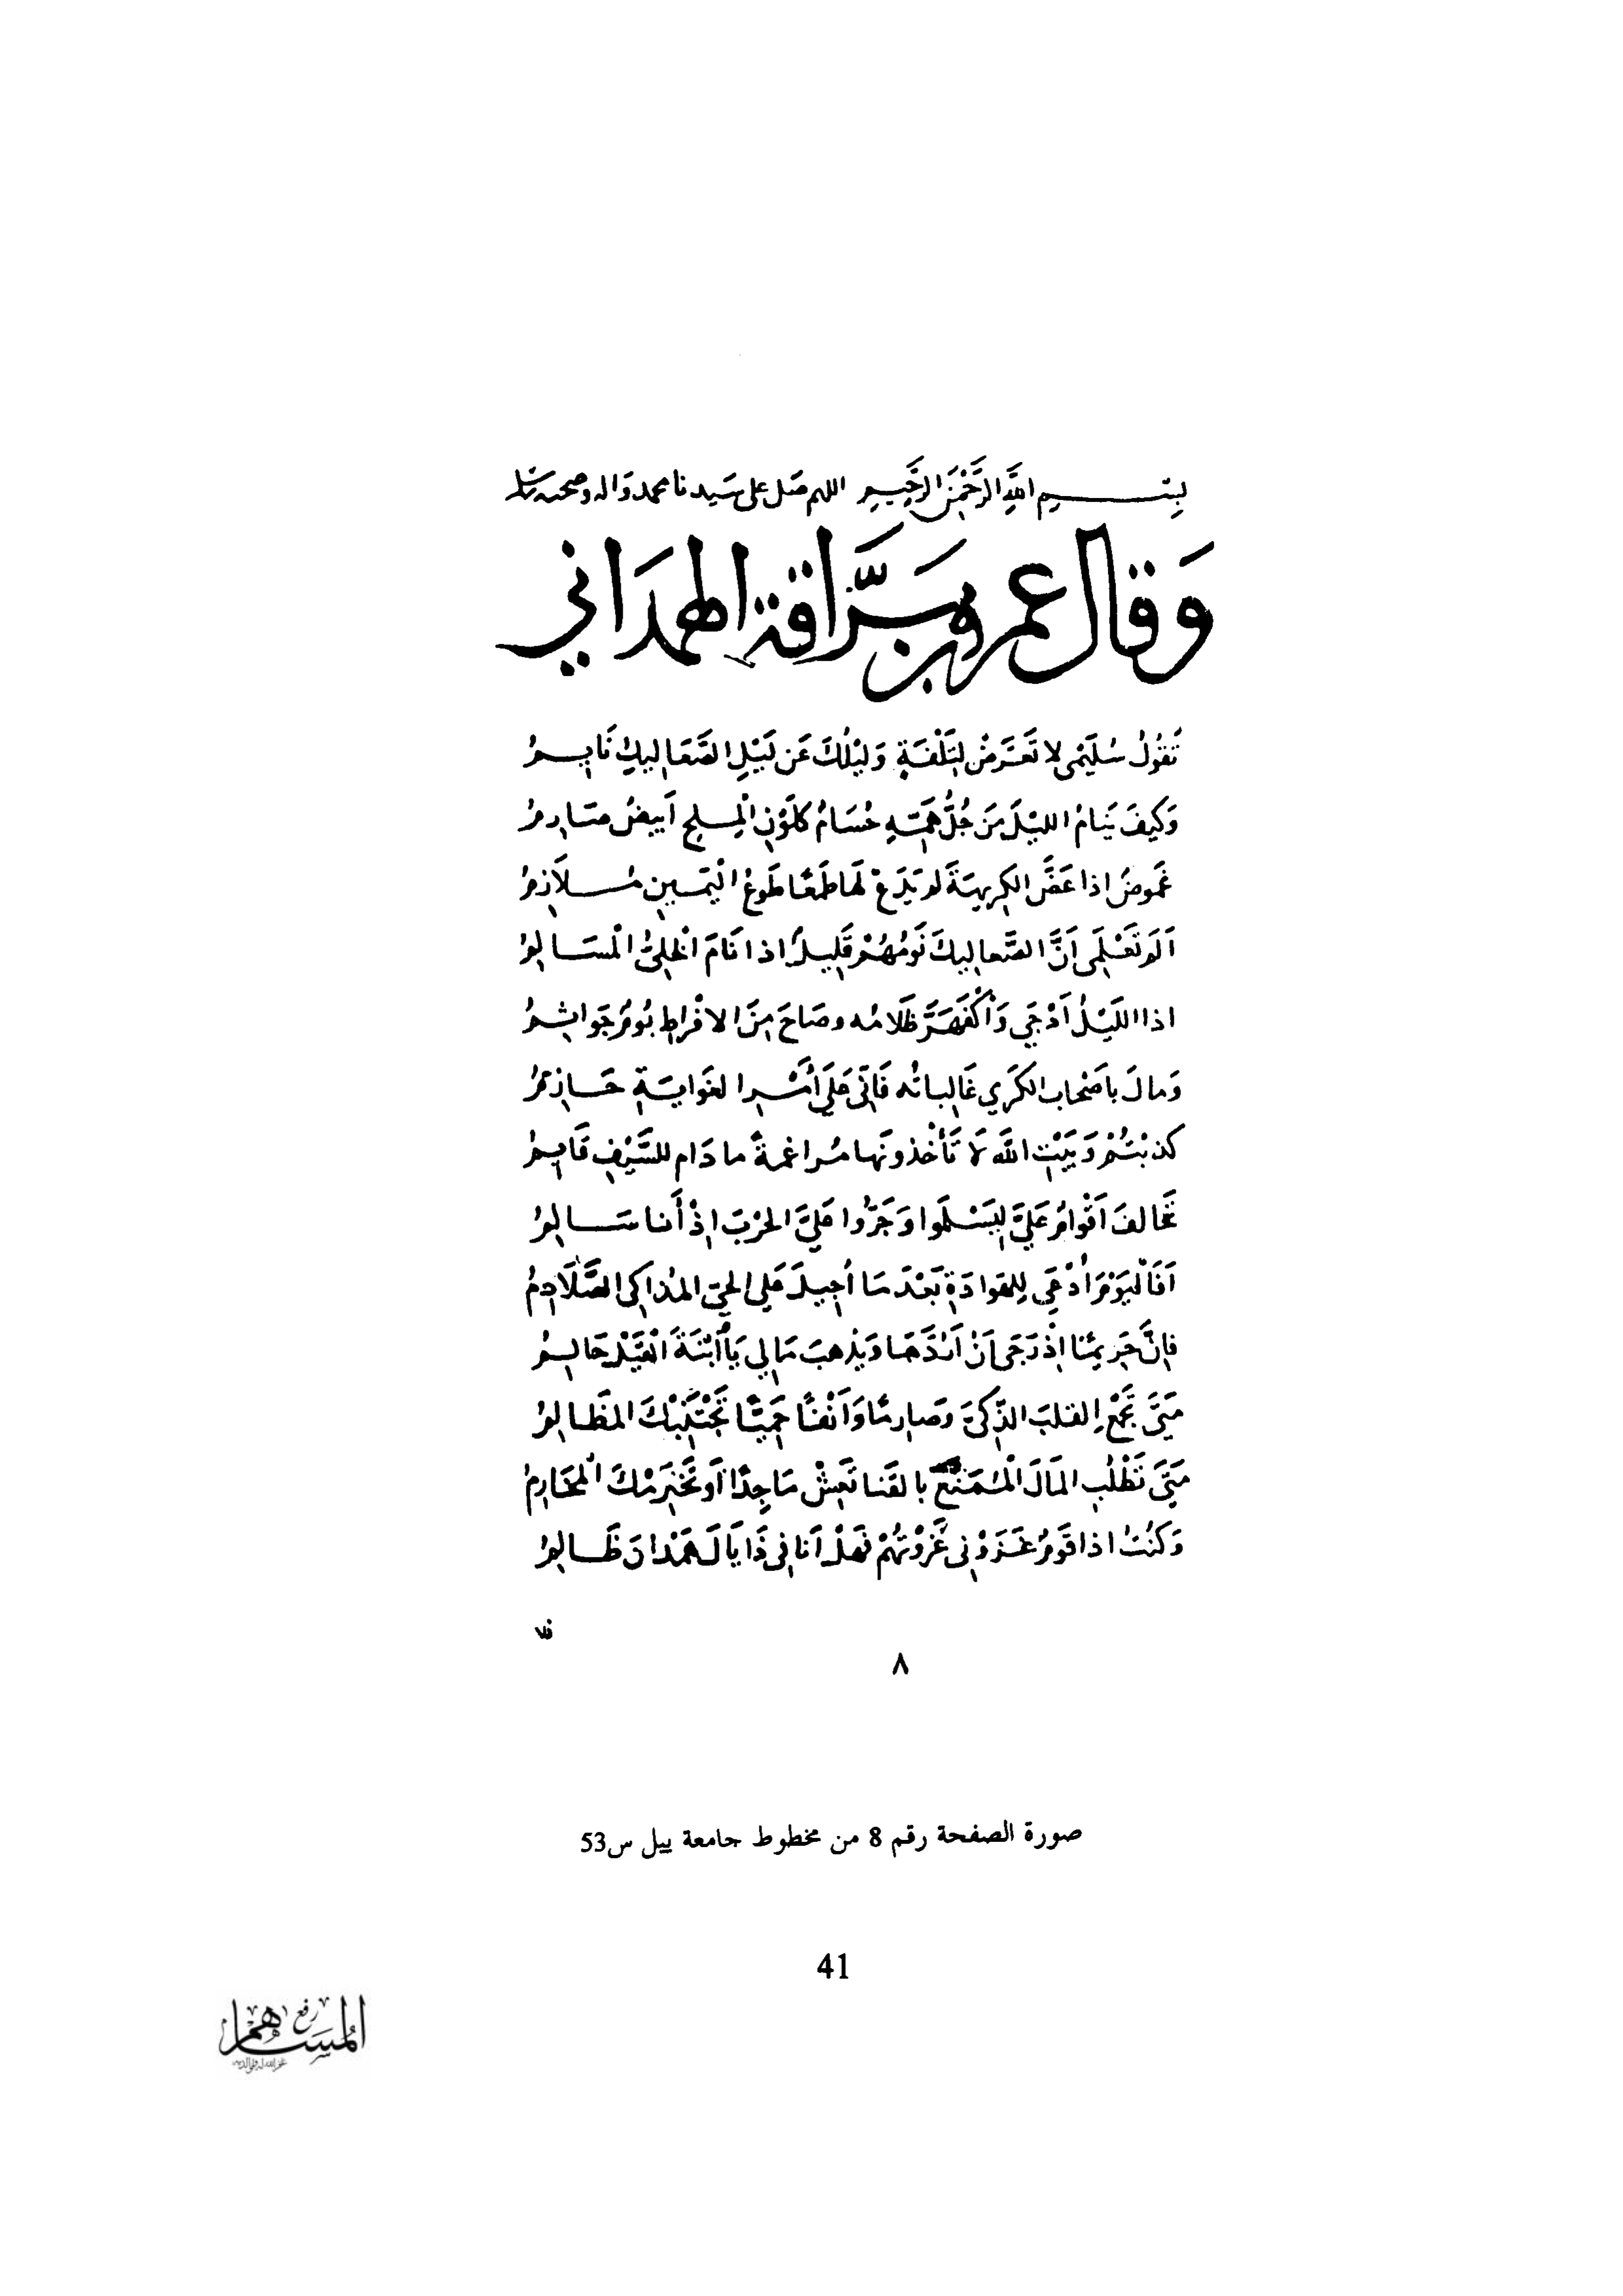 بِسْمِ اللَّهِ الرَّحْمٰنِ الرَّحِيمِ اللهم صَل على سَيدنا محمد وَاله وصحبه وسلم
وَقال عمرو بن بَرَّاقة الهمدَاني
تَقُولُ سُلَيْمى لا تَعَرَّضْ لتَلْفَةٍ وَلَيْلُكَ عَن لَيْلِ الصَّعَاليكِ نَايِمُ
وَكَيفَ يَنَامُ الليْلَ مَن جُلُّ هَمِّهِ حُسَامٌ كَلَوْنِ الْمِلحِ أَبيضُ صَارِمُ
غَموضٌ اذا عَضَّ الكَرِيهَةَ لم يَدَعْ لَهَا طَمَعًا طَوعُ الْيَمينِ مُلَازِمُ
أَلَم تَعْلَمِى أَنَّ الصَّعاليكَ نَومُهُمْ قَلِيلٌ اذا نَامَ الْخلِيُّ الْمسَالِمُ
اذا اللَيْلُ أَدْجَي وَأكْفَهَرَّ ظَلامُه وصَاحَ مِنَ الافْراطِ بُومٌ جَواثِمُ
وَمالَ بأصْحاب الكَرَي غَالباتُه فَانّى عَلَي أَمْرِ الغَوايَةِ حَازِمُ
كَذبْتُمْ وَبَيْتِ اللَّه لَا تَأْخذونَها مُراغمةً ما دَام للسَّيْفِ قَايمُ
تَحَالفَ أقْوامٌ عَلَيَّ لِيَسْلَموا وَجَرُّوا عَليَّ الحَرْبَ إِذْ أَنا سَالِمُ
أَفَالْيَوْمَ أُدْعَي لِلهَوادَةِ بَعْدَ مَا أُجِيلَ عَلى الحيّ المَذاكى الصَّلَادِمُ
فإنَّ حَرِيمًا إذْ رَجَى أنْ أَرُدَّهَا وَيذهبَ مَالِي يَا أبْنَةَ الْقَيْلِ حَالِمُ
مَتَى تَجْمَعِ القلبَ الذَّكىَّ وصَارِمًا وَأَنْفًا حَمِيًّا تَجْتَنِبْكَ المظَالِمُ
مَتَى تَطْلُبِ المَالَ الْمُمَنَّعَ بالقَنا تَعِشْ مَاجِدًا أو تَخْتَرِمْكَ الْمخَارِمُ
وَكنْتُ اذا قَومٌ غَزَوْنِى غَزَوْتُهُمْ فَهلْ أنا فِى ذَا يَالَ هَمْدانَ ظَالِمُ
٨
صورة الصفحة رقم 8 من مخطوط جامعة ييل س53
41
رفع
المساهم
غفر الله له ولوالديه